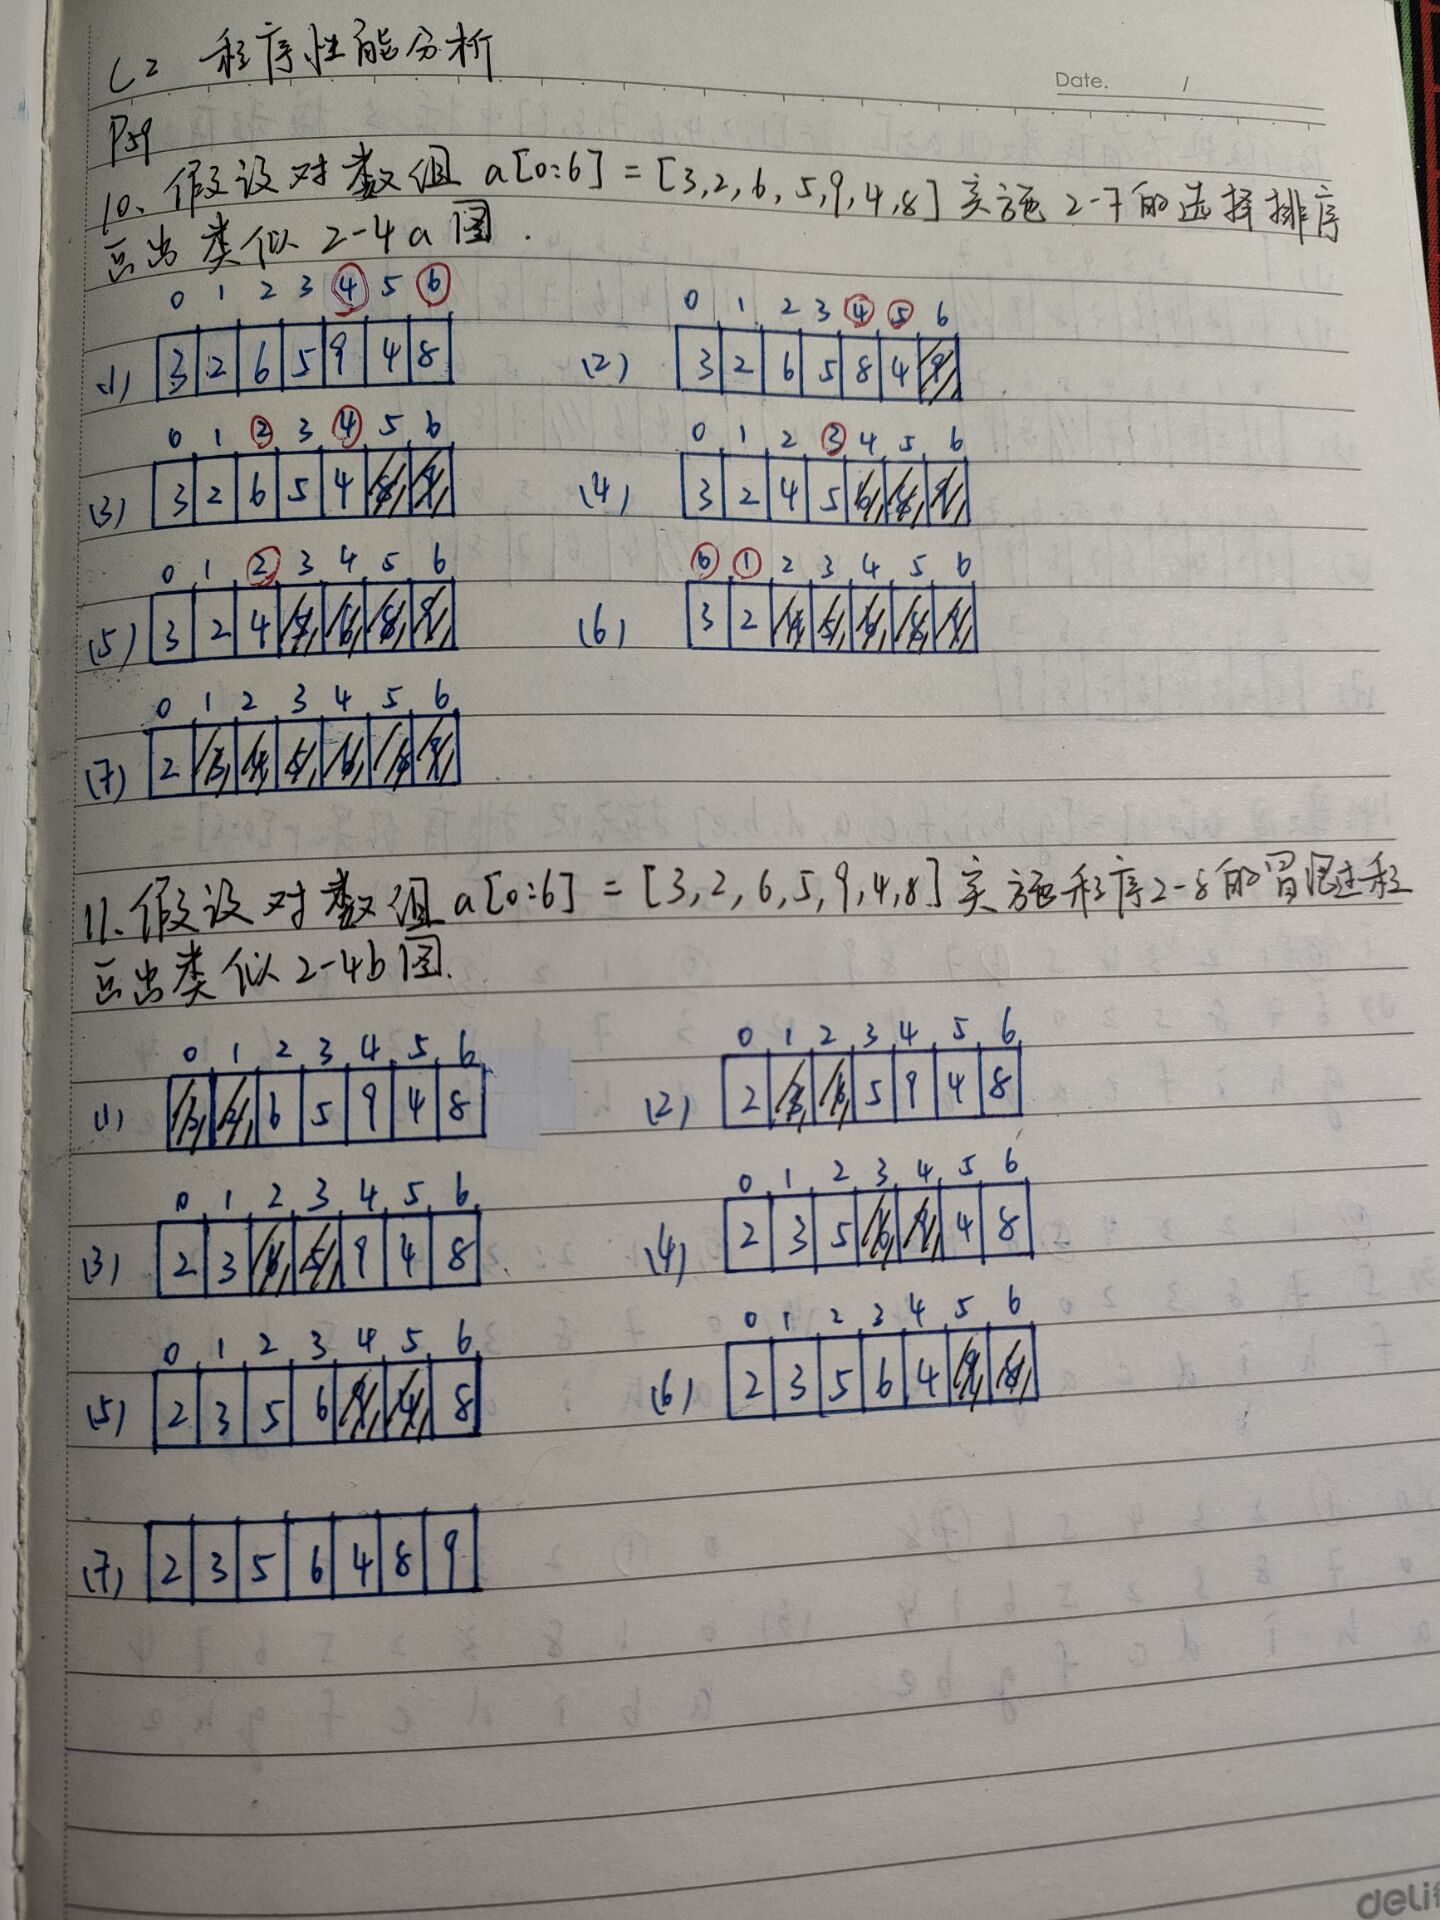 C2 程序性能分析
Date. /
P59
10、假设对数组 a[0:6] = [3,2,6,5,9,4,8] 实施 2-7的选择排序
画出类似 2-4a图.
0 1 2 3 4 5 6
(1) 3 2 6 5 9 4 8
0 1 2 3 4 5 6
(2) 3 2 6 5 8 4 9
0 1 2 3 4 5 6
(3) 3 2 6 5 4 8 9
0 1 2 3 4 5 6
(4) 3 2 4 5 6 8 9
0 1 2 3 4 5 6
(5) 3 2 4 5 6 8 9
0 1 2 3 4 5 6
(6) 3 2 4 5 6 8 9
0 1 2 3 4 5 6
(7) 2 3 4 5 6 8 9
11、假设对数组 a[0:6] = [3,2,6,5,9,4,8] 实施程序2-8的冒泡过程
画出类似 2-4b图.
0 1 2 3 4 5 6
(1) 3 2 6 5 9 4 8
0 1 2 3 4 5 6
(2) 2 3 6 5 9 4 8
0 1 2 3 4 5 6
(3) 2 3 6 5 9 4 8
0 1 2 3 4 5 6
(4) 2 3 5 6 9 4 8
0 1 2 3 4 5 6
(5) 2 3 5 6 9 4 8
0 1 2 3 4 5 6
(6) 2 3 5 6 4 9 8
(7) 2 3 5 6 4 8 9
deli